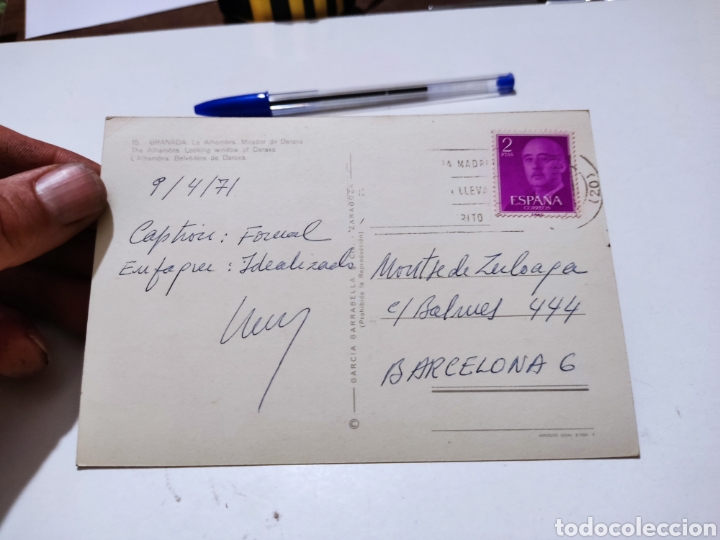 GRANADA. La Alhambra. Mirador de Daraxa
The Alhambra. Looking window of Daraxa
L'Alhambra. Belvédère de Daraxa
9/4/71
Caption: Formal
Enfoque: Idealizado
© GARCIA GARRABELLA Y CIA. ZARAGOZA
(Prohibida la Reproducción)
MADRI
LLEVA
PITO
(20)
2
PTAS
ESPAÑA
CORREOS
Montse de Zuloaga
c/ Balmes 444
BARCELONA 6
todocoleccion